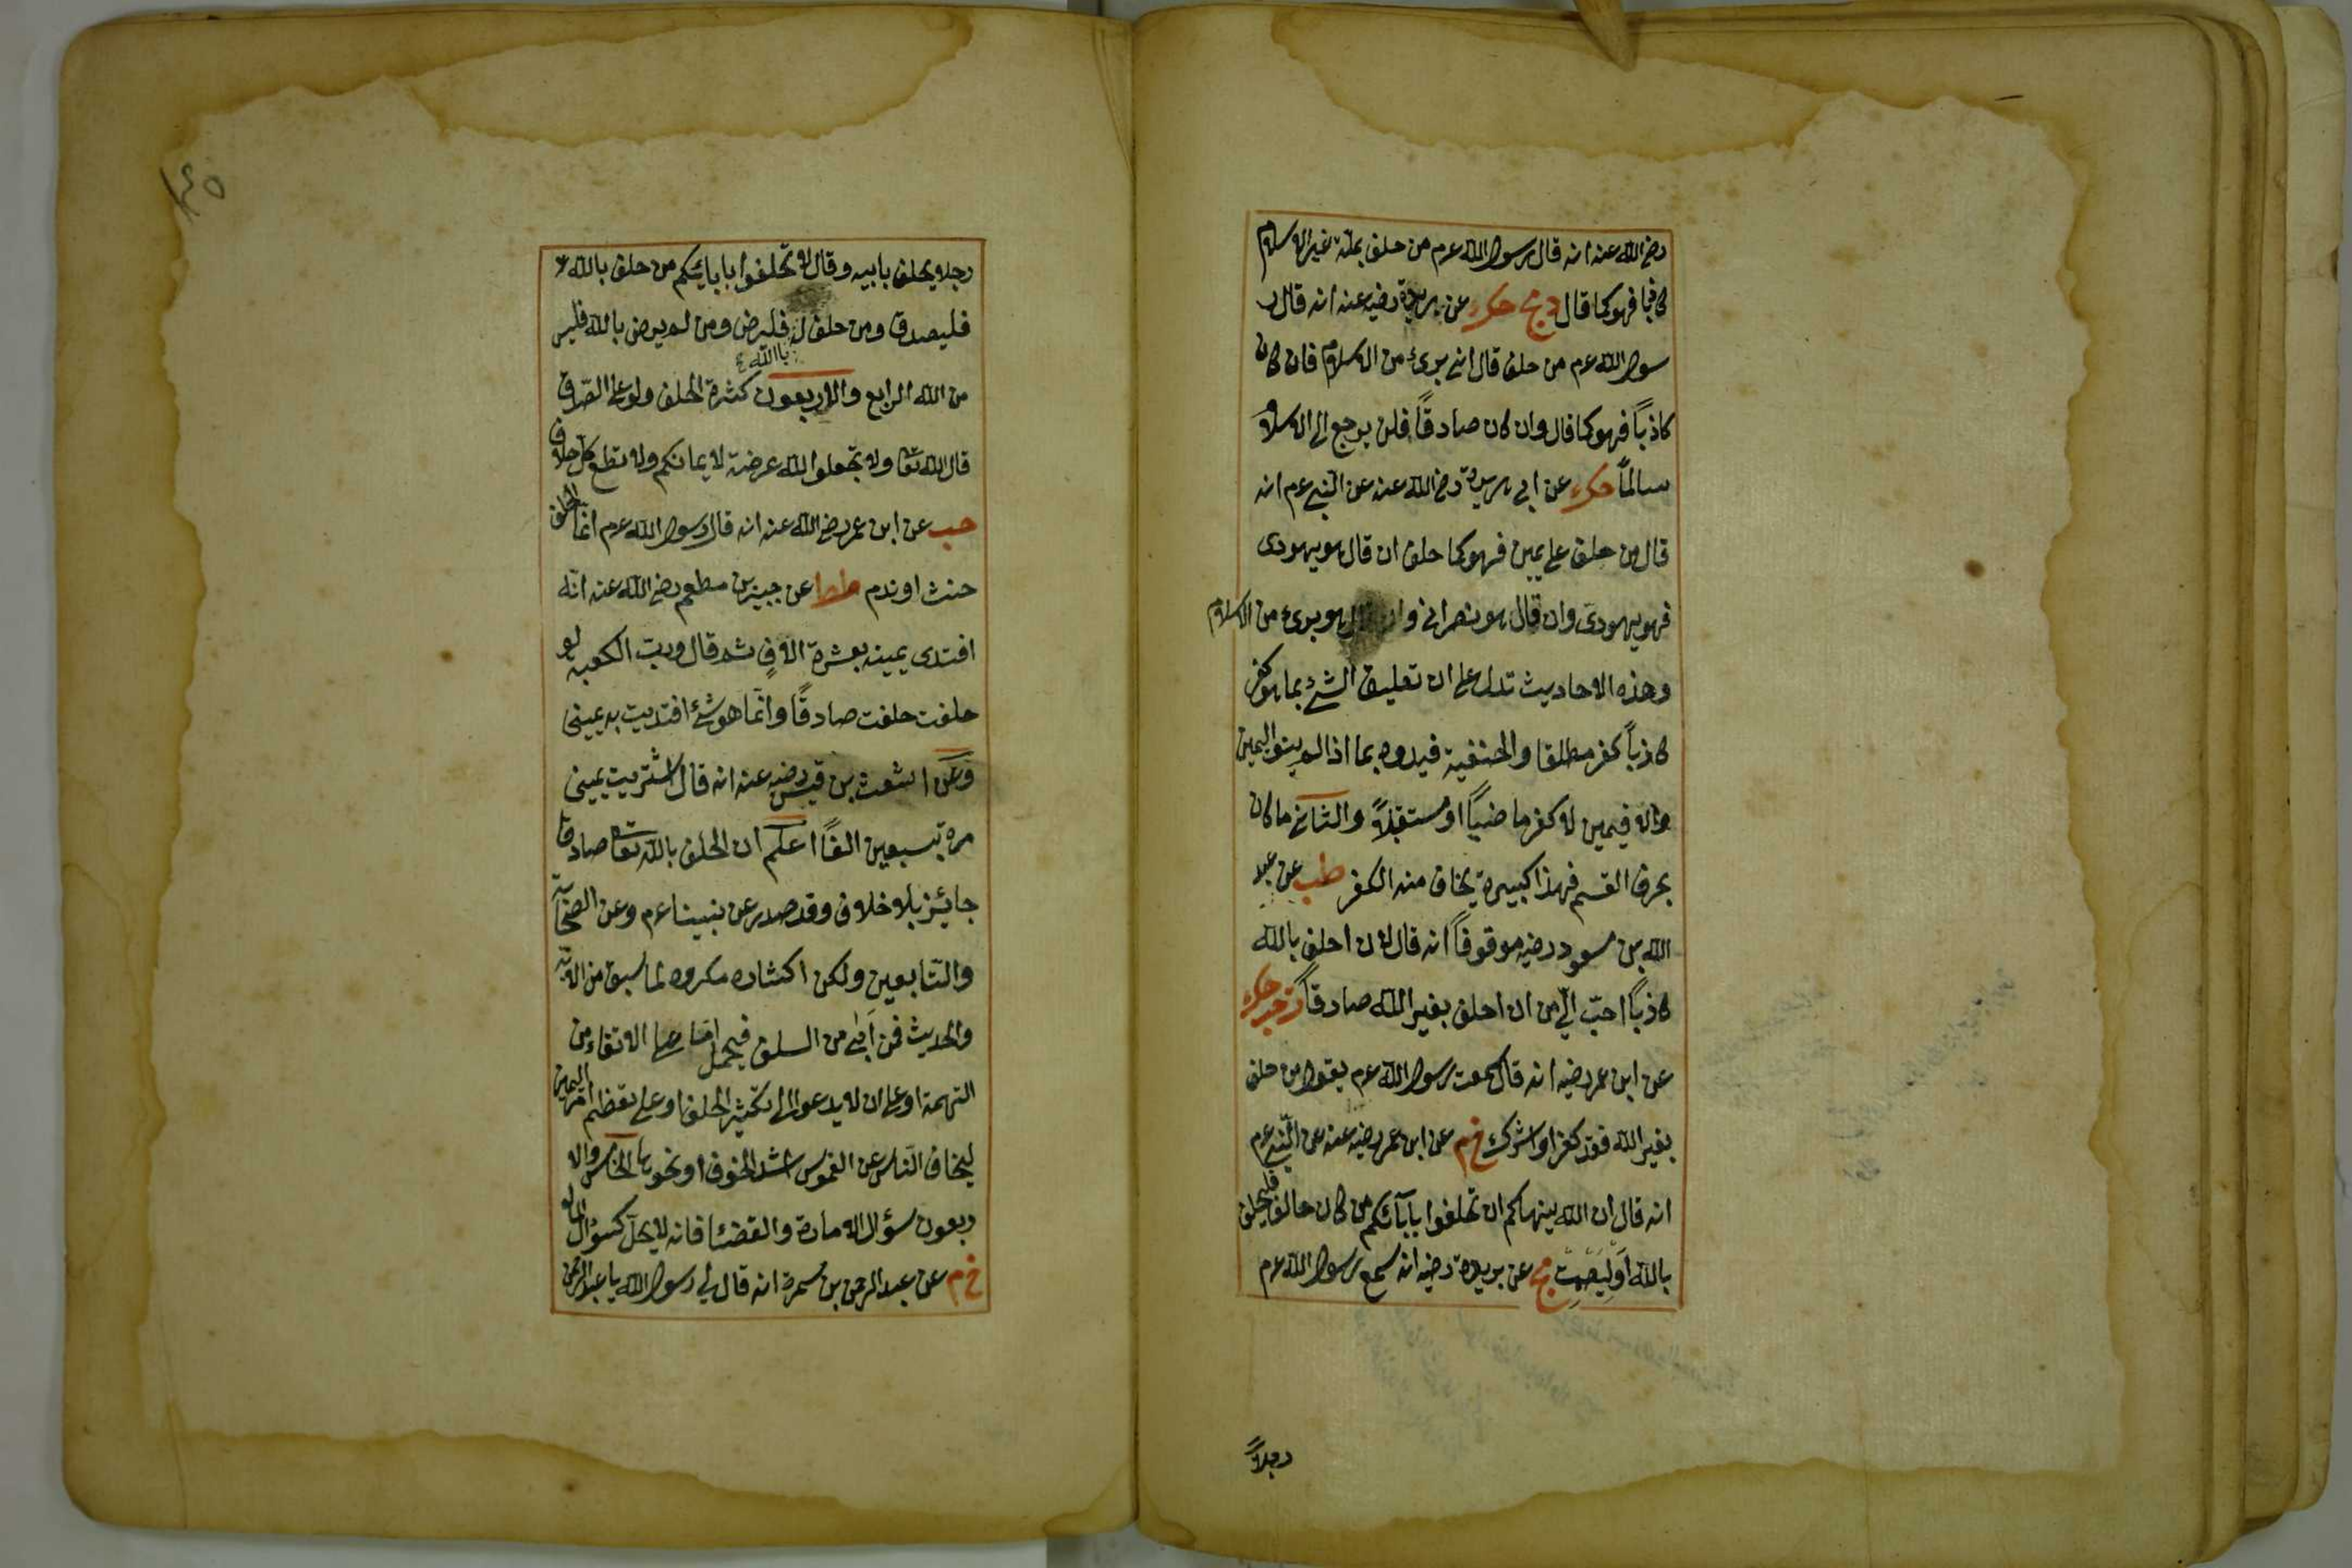 رضى الله عنه انه قال رسول الله عم من حلف بملة غير الاسلام
كاذبا فهو كما قال دمج حك عن بريدة رضيه عنه انه قال ر
سول الله عم من حلف قال انى برئ من الاسلام فان كان
كاذباً فهو كما قال وان كان صادقاً فلن يرجع الى الاسلام
سالماً حك عن ابى هريرة رضى الله عنه عن النبى عم انه
قال من حلف على يمين فهو كما حلف ان قال هو يهودى
فهو يهودى وان قال هو نصرانى وان قال هو برئ من الاسلام
وهذه الاحاديث تدل على ان تعليق الشئ بما هو كفر
كاذباً كفر مطلقا والحنفية قيدوه بما اذا لم ينو اليمين
والا فيمين لا كفر ماضياً او مستقبلاً والثانى ما كان
بحرف القسم فهذا كبيرة يخاف منه الكفر طب عن عبد
الله بن مسعود رضيه موقوفاً انه قال لان احلف بالله
كاذباً احب الى من ان احلف بغير الله صادقاً ت حب حك
عن ابن عمر رضيه انه قال سمعت رسول الله عم يقول من حلف
بغير الله فقد كفر او اشرك خ م عن ابن عمر رضيه عنه عن النبى عم
انه قال ان الله ينهاكم ان تحلفوا بآبائكم من كان حالفا فليحلف
بالله او ليصمت مج عن بريدة رضيه انه سمع رسول الله عم
رجلاً
١٤٥
رجلا يحلف بابيه وقال لا تحلفوا بابائكم من حلف بالله
فليصدق ومن حلف له فليرض ومن لم يرض بالله فليس
بالله
من الله الرابع والاربعون كثرة الحلف ولو على الصدق
قال الله تعا ولا تجعلوا الله عرضة لايمانكم ولا تطع كل حلاف
حب عن ابن عمر رضى الله عنه انه قال رسول الله عم انما الحلف
حنث او ندم طط عن جبير بن مطعم رضى الله عنه انه
افتدى يمينه بعشرة الاف ثم قال ورب الكعبة لو
حلفت حلفت صادقاً وانما هو شئ افتديت به يمينى
وعن اشعث بن قيس رضيه عنه انه قال اشتريت يمينى
مرة بسبعين الفاً اعلم ان الحلف بالله تعا صادقا
جائز بلا خلاف وقد صدر عن نبينا عم وعن الصحابة
والتابعين ولكن اكثاره مكروه لما سبق من الاية
والحديث فمن ابى من السلف فيحمل اما على الاتقاء من
التهمة او على ان لا يدعو الى تكثير الحلف او على تعظيم امر اليمين
ليخاف الناس عن الغموس اشد الخوف او نحوها الخامس والا
ربعون سؤال الامارة والقضا فانه لا يحل كسؤال المال
خ م عن عبد الرحمن بن سمرة انه قال لى رسول الله يا عبد الرحمن